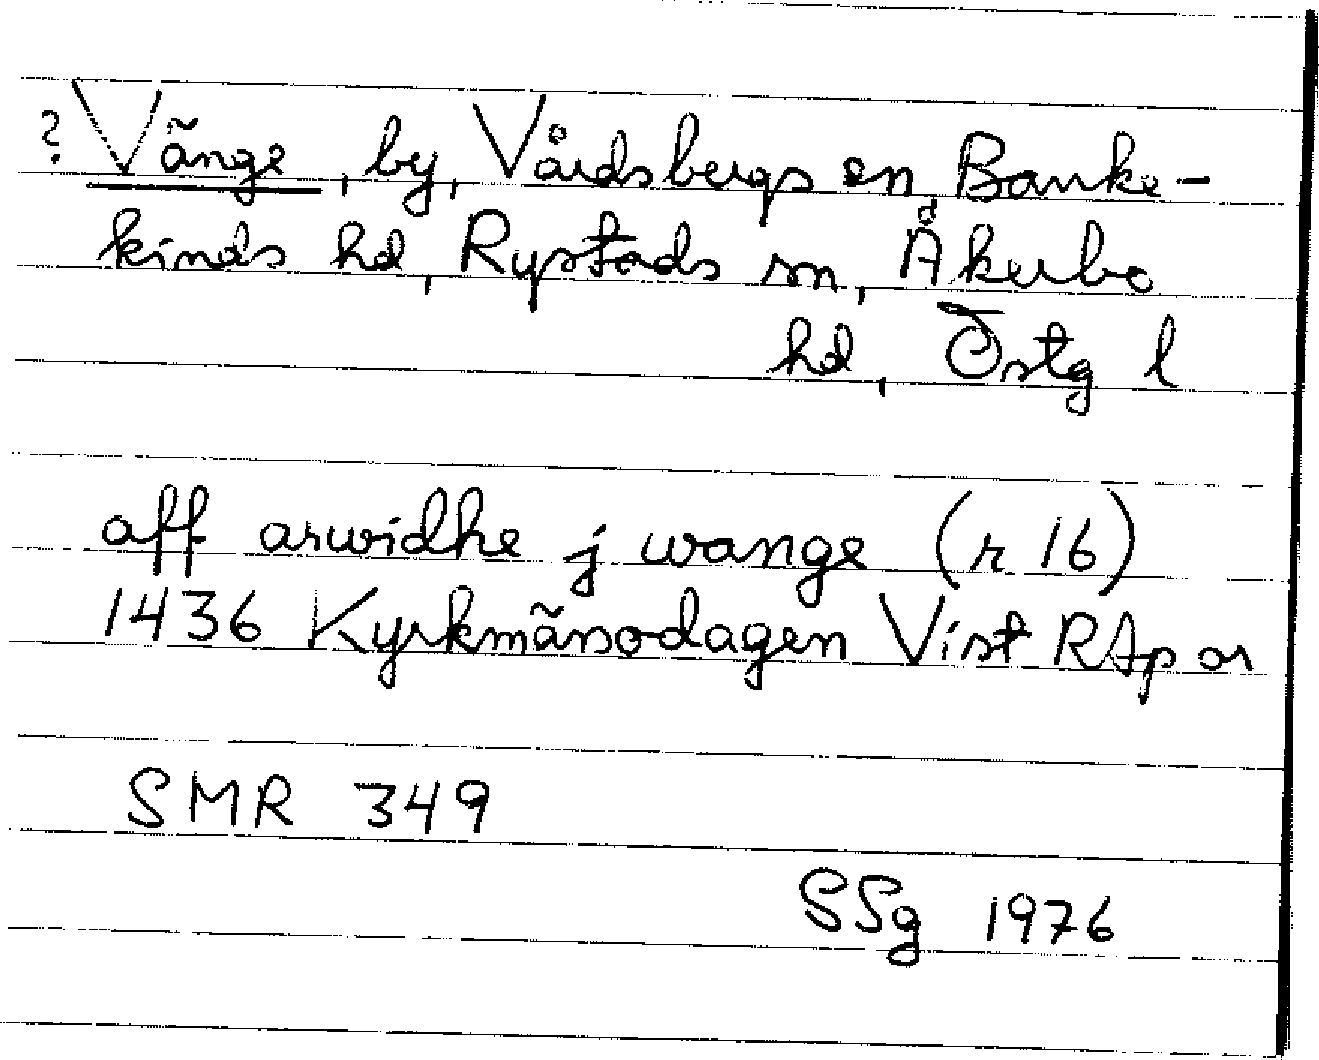 ? Vänge, by, Vårdsbergs sn, Banke-
kinds hd, Rystads sn, Åkerbo
hd, Östg l
aff arwidhe j wange (r 16)
1436 Kyrkmässodagen Vist RAp or
SMR 349
SSg 1976